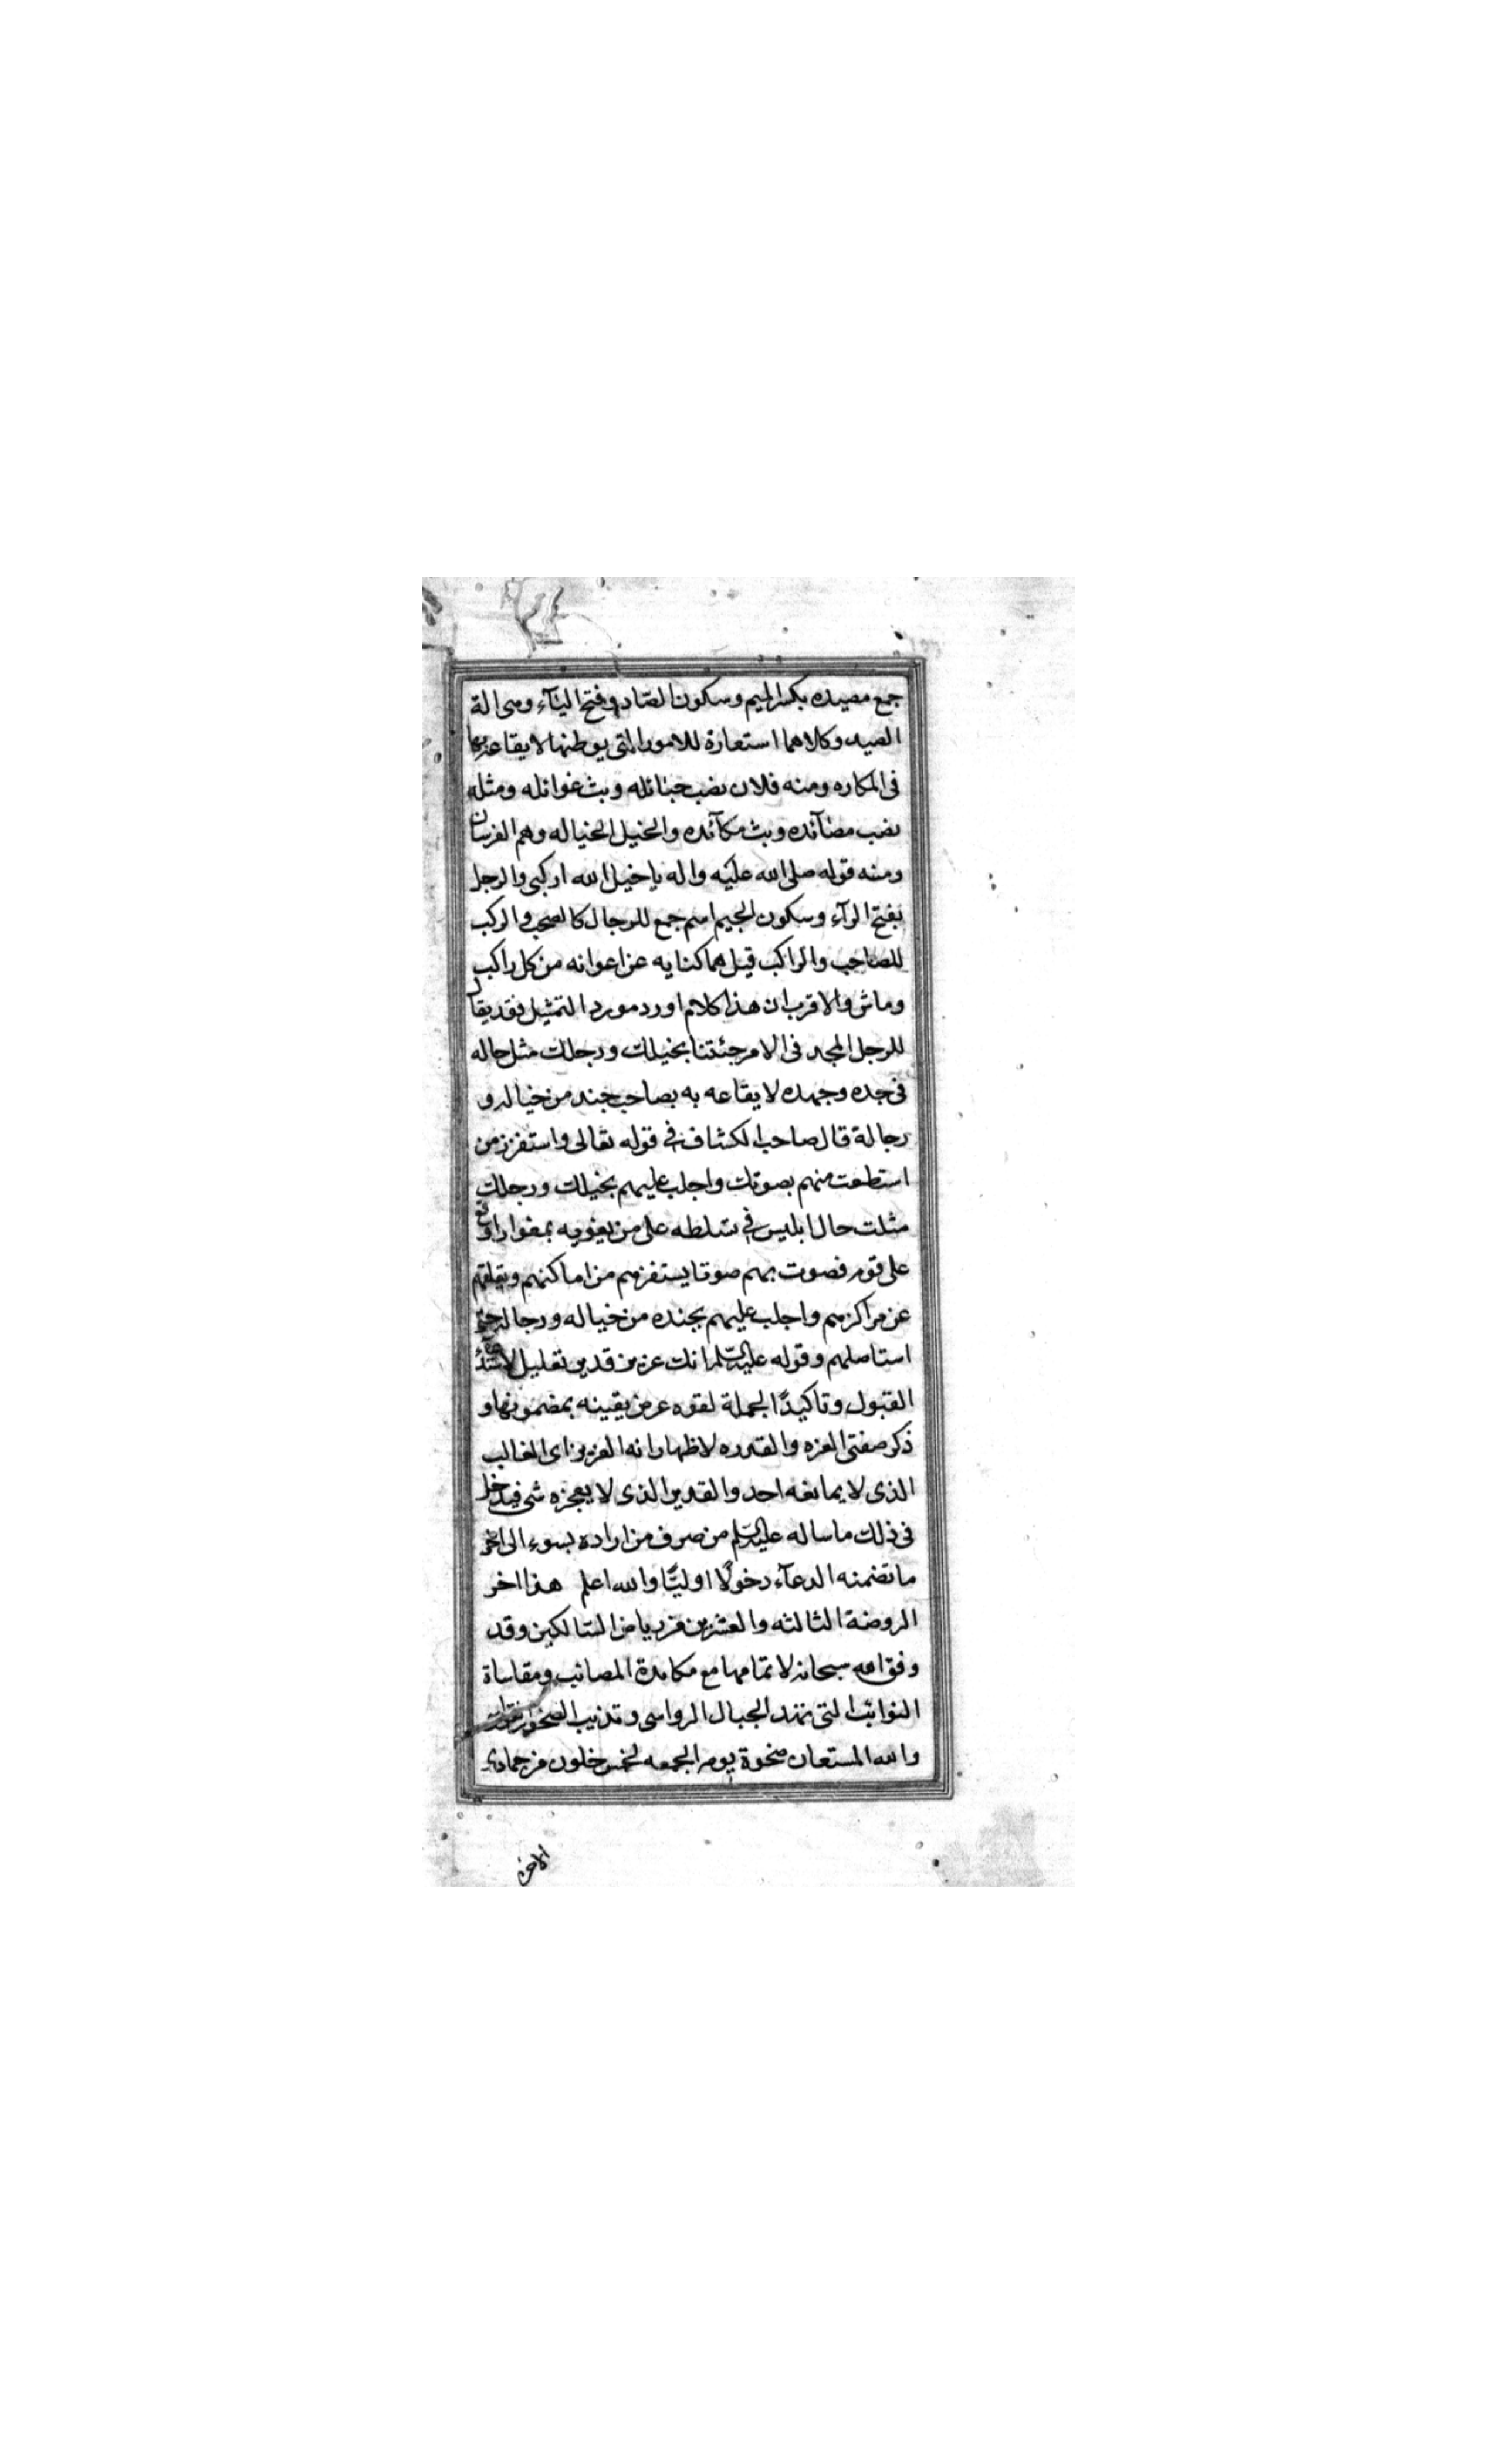 جمع مصيده بكسر الميم وسكون الصاد وفتح الياء وهى الة
الصيد وكلاهما استعارة للامور التى يوطنها لايقاع
فى المكاره ومنه فلان نصب حبائله وبث غوائله ومثله
نصب مصآئده وبث مكآئده والخيل الخياله وهم الفرسان
ومنه قوله صلى الله عليه واله يا خيل الله اركبى والرجل
بفتح الرآء وسكون الجيم اسم جمع للرجال كالصحب والركب
للصاحب والراكب قيل هما كنايه عن اعوانه من كل راكب
وماش والاقرب ان هذا كلام اورد مورد التمثيل فقد يقال
للرجل المجد فى الامر جئتنا بخيلك ورجلك مثل حاله
فى جده وجهده لايقاعه به بصاحب جند من خياله و
رجالة قال صاحب الكشاف فى قوله تعالى واستفزز من
استطعت منهم بصوتك واجلب عليهم بخيلك ورجلك
مثلت حال ابليس فى تسلطه على من يغويه بمغوار اوقع
على قوم فصوت بهم صوتا يستفزهم من اماكنهم ويقلقهم
عن مراكزهم واجلب عليهم بجنده من خياله ورجاله حتى
استاصلهم وقوله عليه السلم انك عزيز قدير تعليل لاستدعآء
القبول وتاكيدًا لجملة لقوه عرض يقينه بمضمونها و
ذكر صفتى العزه والقدره لاظهار انه العزيز اى الغالب
الذى لا يمانعه احد والقدير الذى لا يعجزه شى فيدخل
فى ذلك ما ساله عليه السلم من صرف من اراده بسوء الى اخر
ما تضمنه الدعآء دخولًا اوليًّا والله اعلم هذا اخر
الروضة الثالثه والعشرين من رياض السالكين وقد
وفق الله سبحانه لاتمامها مع مكابدة المصائب ومقاساة
النوائب التى تهد الجبال الرواسى وتذيب الصخور
والله المستعان ضحوة يوم الجمعه لخمس خلون من جمادى
الاخرة